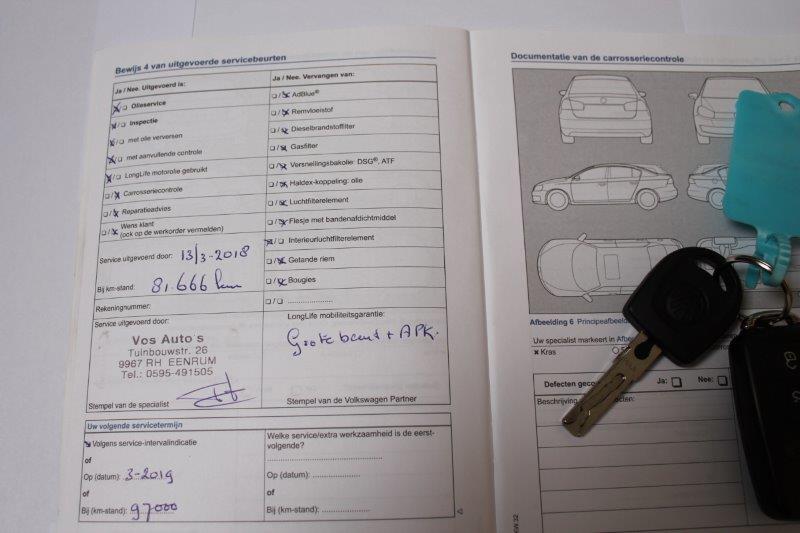 Bewijs 4 van uitgevoerde servicebeurten
Ja / Nee. Uitgevoerd is:
Olieservice
Inspectie
met olie verversen
met aanvullende controle
LongLife motorolie gebruikt
Carrosseriecontrole
Reparatieadvies
Wens klant
(ook op de werkorder vermelden)
Service uitgevoerd door: 13/3-2018
Bij km-stand: 81.666 km
Rekeningnummer:
Service uitgevoerd door:
Vos Auto's
Tuinbouwstr. 26
9967 RH EENRUM
Tel.: 0595-491505
Stempel van de specialist
Ja / Nee. Vervangen van:
AdBlue®
Remvloeistof
Dieselbrandstoffilter
Gasfilter
Versnellingsbakolie: DSG®, ATF
Haldex-koppeling: olie
Luchtfilterelement
Flesje met bandenafdichtmiddel
Interieurluchtfilterelement
Getande riem
Bougies
LongLife mobiliteitsgarantie:
Grote beurt + APK.
Stempel van de Volkswagen Partner
Uw volgende servicetermijn
Volgens service-intervalindicatie
of
Op (datum): 3-2019
of
Bij (km-stand): 97000
Welke service/extra werkzaamheid is de eerst-
volgende?
Op (datum):
of
Bij (km-stand):
Documentatie van de carrosseriecontrole
Afbeelding 6 Principeafbeeld
Uw specialist markeert in Afbe
x Kras
Defecten geco
Ja: Nee:
Beschrijving